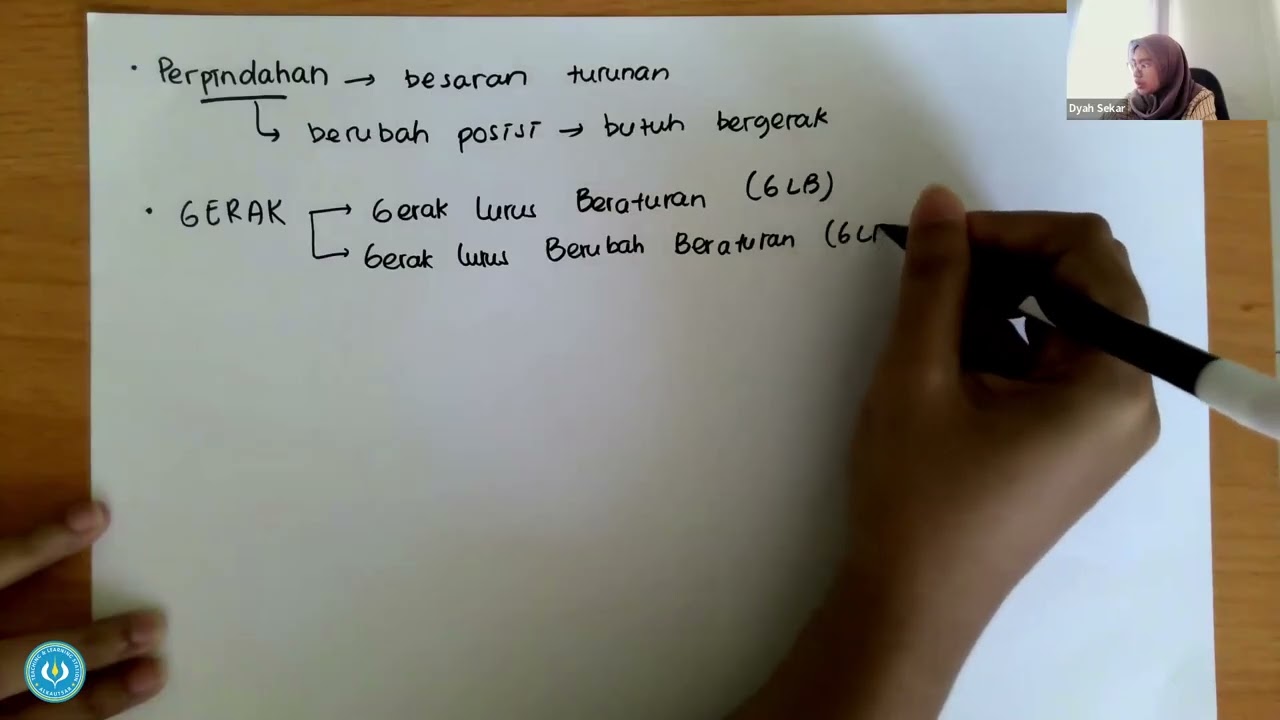 • Perpindahan → besaran turunan
↳ berubah posisi → butuh bergerak
• GERAK → Gerak Lurus Beraturan (GLB)
→ Gerak Lurus Berubah Beraturan (GL
Dyah Sekar
TEACHING & LEARNING STATION
ALKAUTSAR